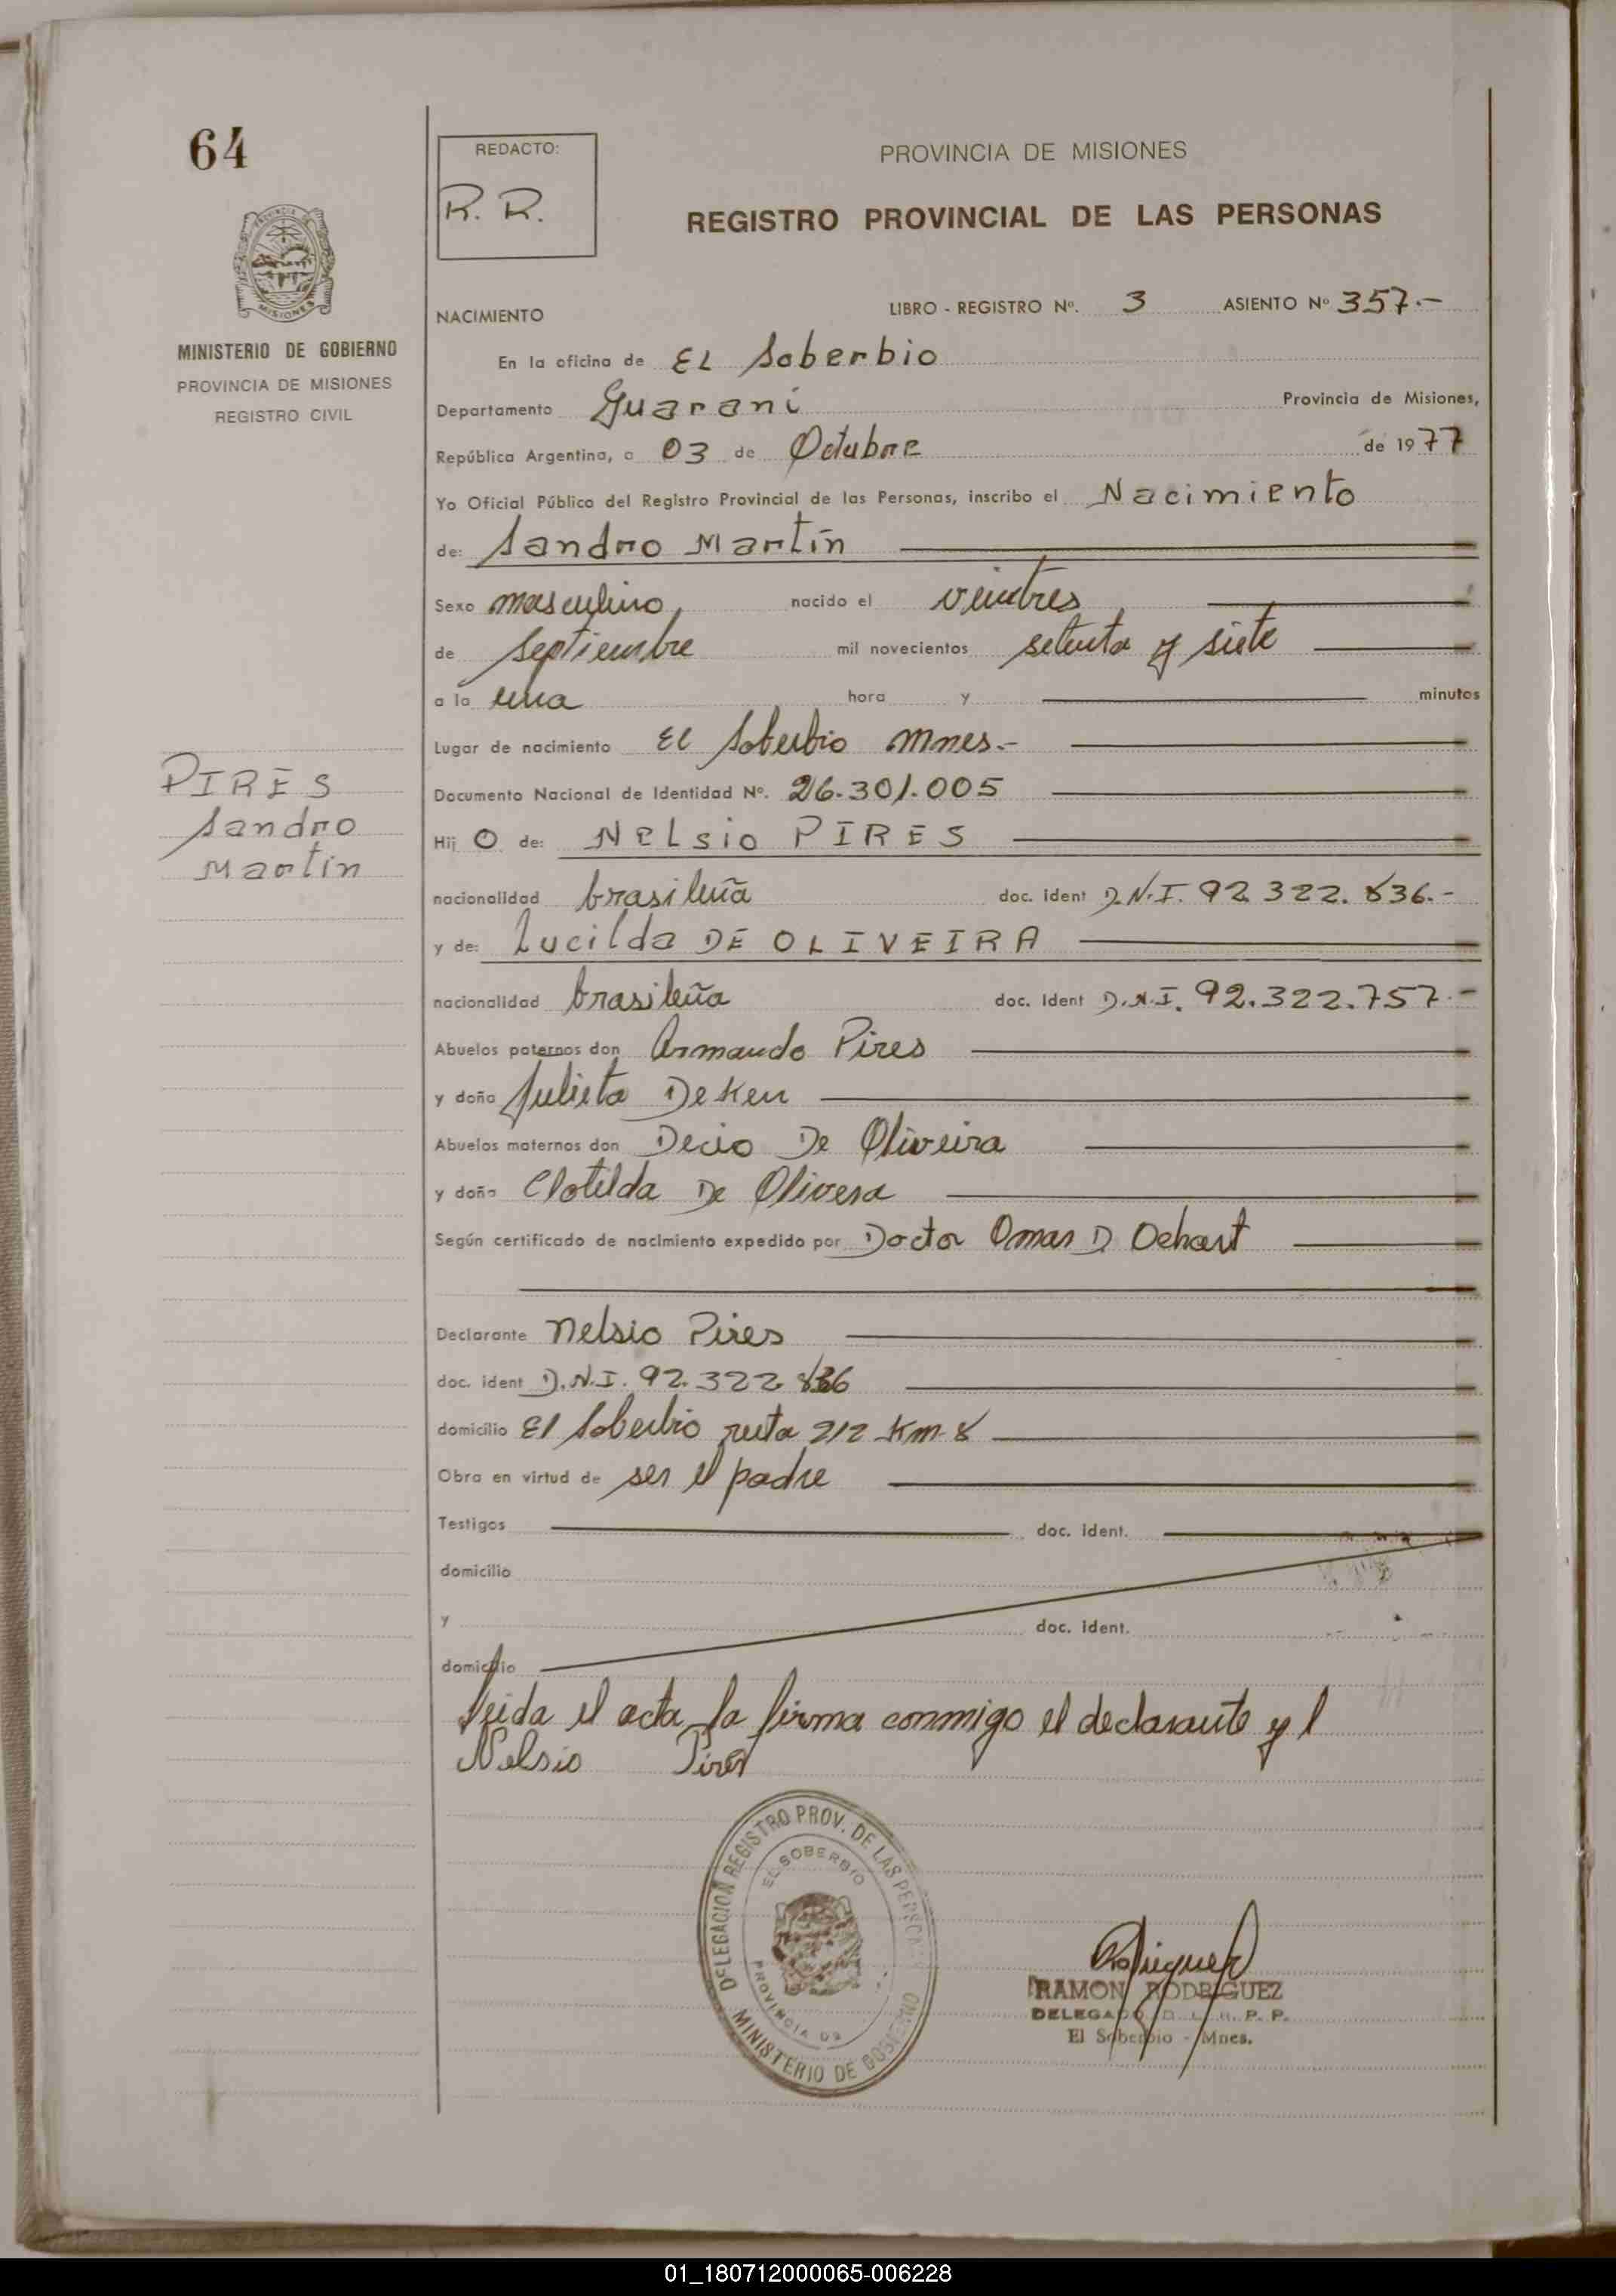 64
REDACTO:
R. R.
PROVINCIA DE MISIONES
REGISTRO PROVINCIAL DE LAS PERSONAS
MISIONES
MINISTERIO DE GOBIERNO
PROVINCIA DE MISIONES
REGISTRO CIVIL
NACIMIENTO LIBRO - REGISTRO Nº. 3 ASIENTO Nº 357.-
En la oficina de EL Soberbio
Departamento Guarani Provincia de Misiones,
República Argentina, a 03 de Octubre de 1977
Yo Oficial Público del Registro Provincial de las Personas, inscribo el Nacimiento
de: Sandro Martín
Sexo masculino, nacido el veintres
de septiembre mil novecientos setenta y siete
a la una hora y minutos
Lugar de nacimiento El Soberbio Mnes.-
PIRES
Sandro
Martin
Documento Nacional de Identidad Nº. 26.301.005
Hij O de: Nelsio PIRES
nacionalidad brasileña doc. ident D.N.I. 92.322.836.-
y de: Lucilda DE OLIVEIRA
nacionalidad brasileña doc. Ident D.N.I. 92.322.757.-
Abuelos paternos don Armando Pires
y doña Julieta Deken
Abuelos maternos don Decio De Oliveira
y doña Clotilda De Olivera
Según certificado de nacimiento expedido por Doctor Omar D Ochart
Declarante Nelsio Pires
doc. ident D.N.I. 92.322.836
domicilio El Soberbio ruta 212 Km 8
Obra en virtud de ser el padre
Testigos doc. ident.
domicilio
y doc. ident.
domicilio
Leida el acta la firma conmigo el declarante y l
Nelsio Pires
DELEGACION REGISTRO PROV. DE LAS PERSONAS
EL SOBERBIO
PROVINCIA DE
MINISTERIO DE GOBIERNO
Rodriguez
RAMON RODRIGUEZ
DELEGADO D. L. R. P. P.
El Soberbio - Mnes.
01_180712000065-006228